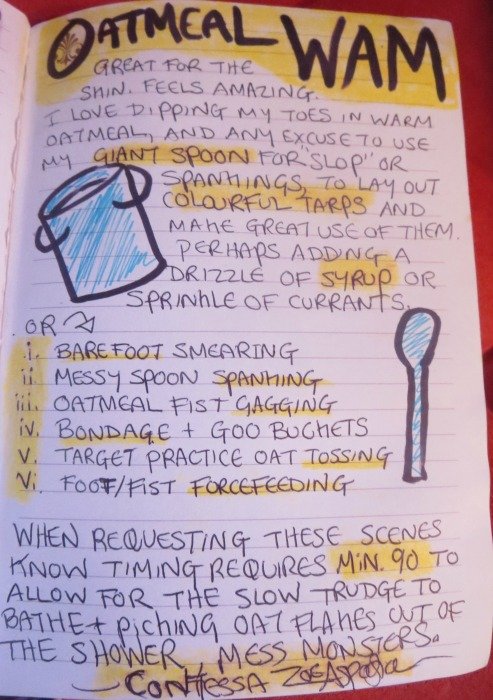 OATMEAL WAM
GREAT FOR THE
SKIN. FEELS AMAZING.
I LOVE DIPPING MY TOES IN WARM
OATMEAL, AND ANY EXCUSE TO USE
MY GIANT SPOON FOR "SLOP" OR
SPANKINGS, TO LAY OUT
COLOURFUL TARPS AND
MAKE GREAT USE OF THEM.
PERHAPS ADDING A
DRIZZLE OF SYRUP OR
SPRINKLE OF CURRANTS.
OR
i. BAREFOOT SMEARING
ii. MESSY SPOON SPANKING
iii. OATMEAL FIST GAGGING
iv. BONDAGE + GOO BUCKETS
v. TARGET PRACTICE OAT TOSSING
Vi. FOOT/FIST FORCEFEEDING
WHEN REQUESTING THESE SCENES
KNOW TIMING REQUIRES MiN. 90 TO
ALLOW FOR THE SLOW TRUDGE TO
BATHE + PiCKING OAT FLAKES OUT OF
THE SHOWER, MESS MONSTERS.
CONTESSA